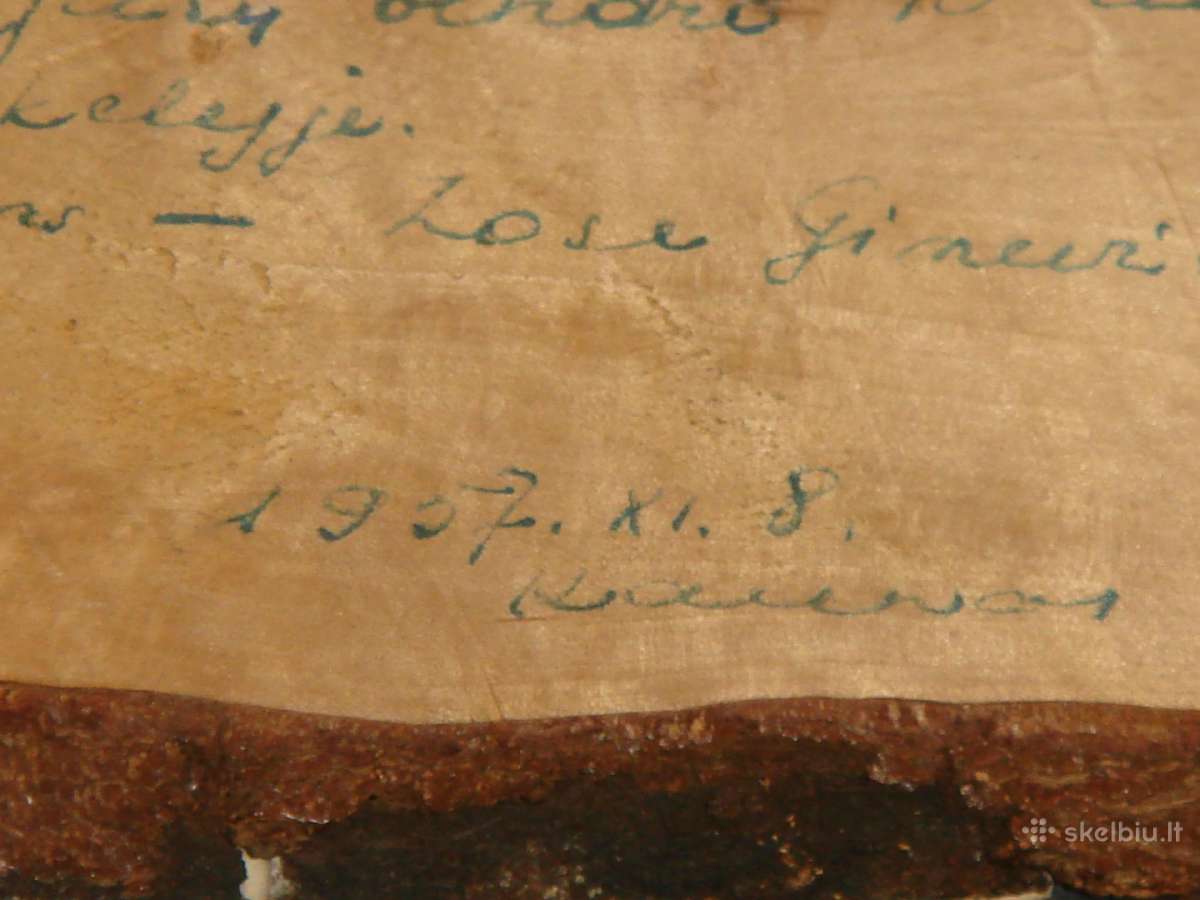 bendro
kelyje.
– Zose Ginevi
1957. XI. 8.
Kaunas
skelbiu.lt